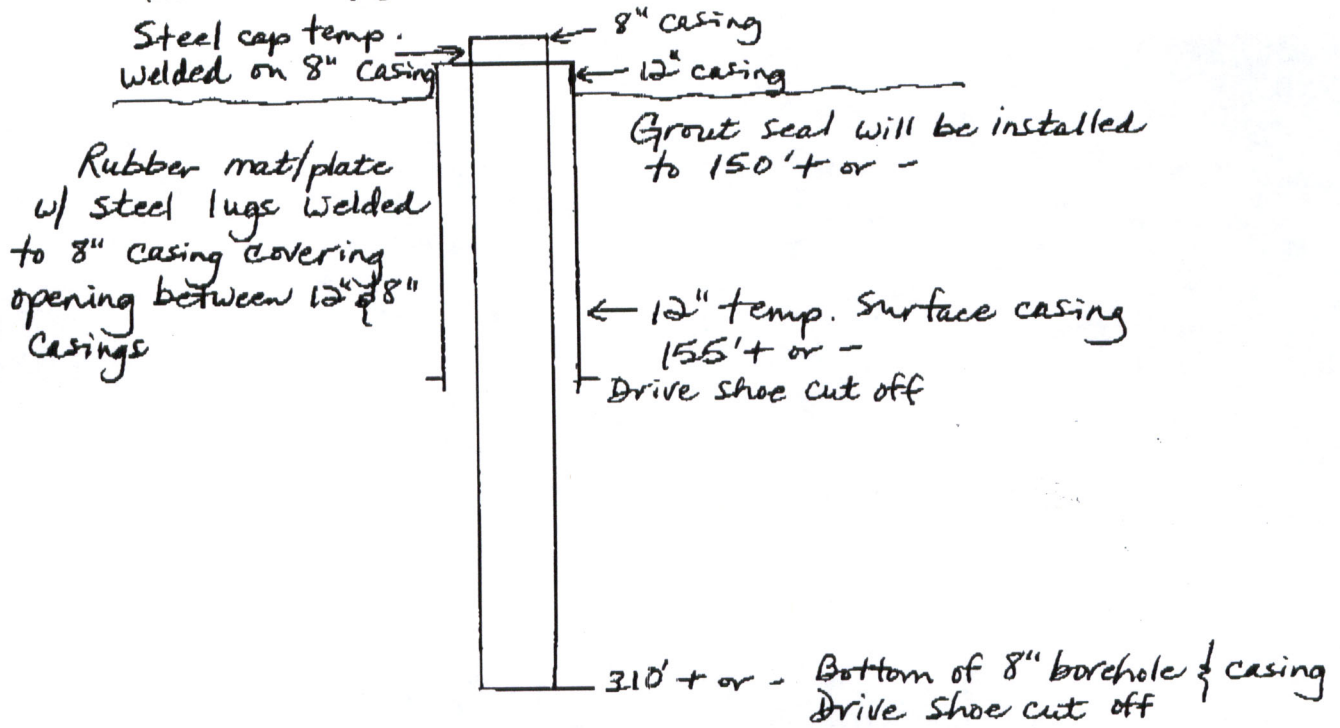 Steel cap temp.
welded on 8" casing
8" casing
12" casing
Grout seal will be installed
to 150' + or -
Rubber mat/plate
w/ steel lugs welded
to 8" casing covering
opening between 12" & 8"
casings
12" temp. surface casing
155' + or -
Drive shoe cut off
310' + or - Bottom of 8" borehole & casing
Drive shoe cut off